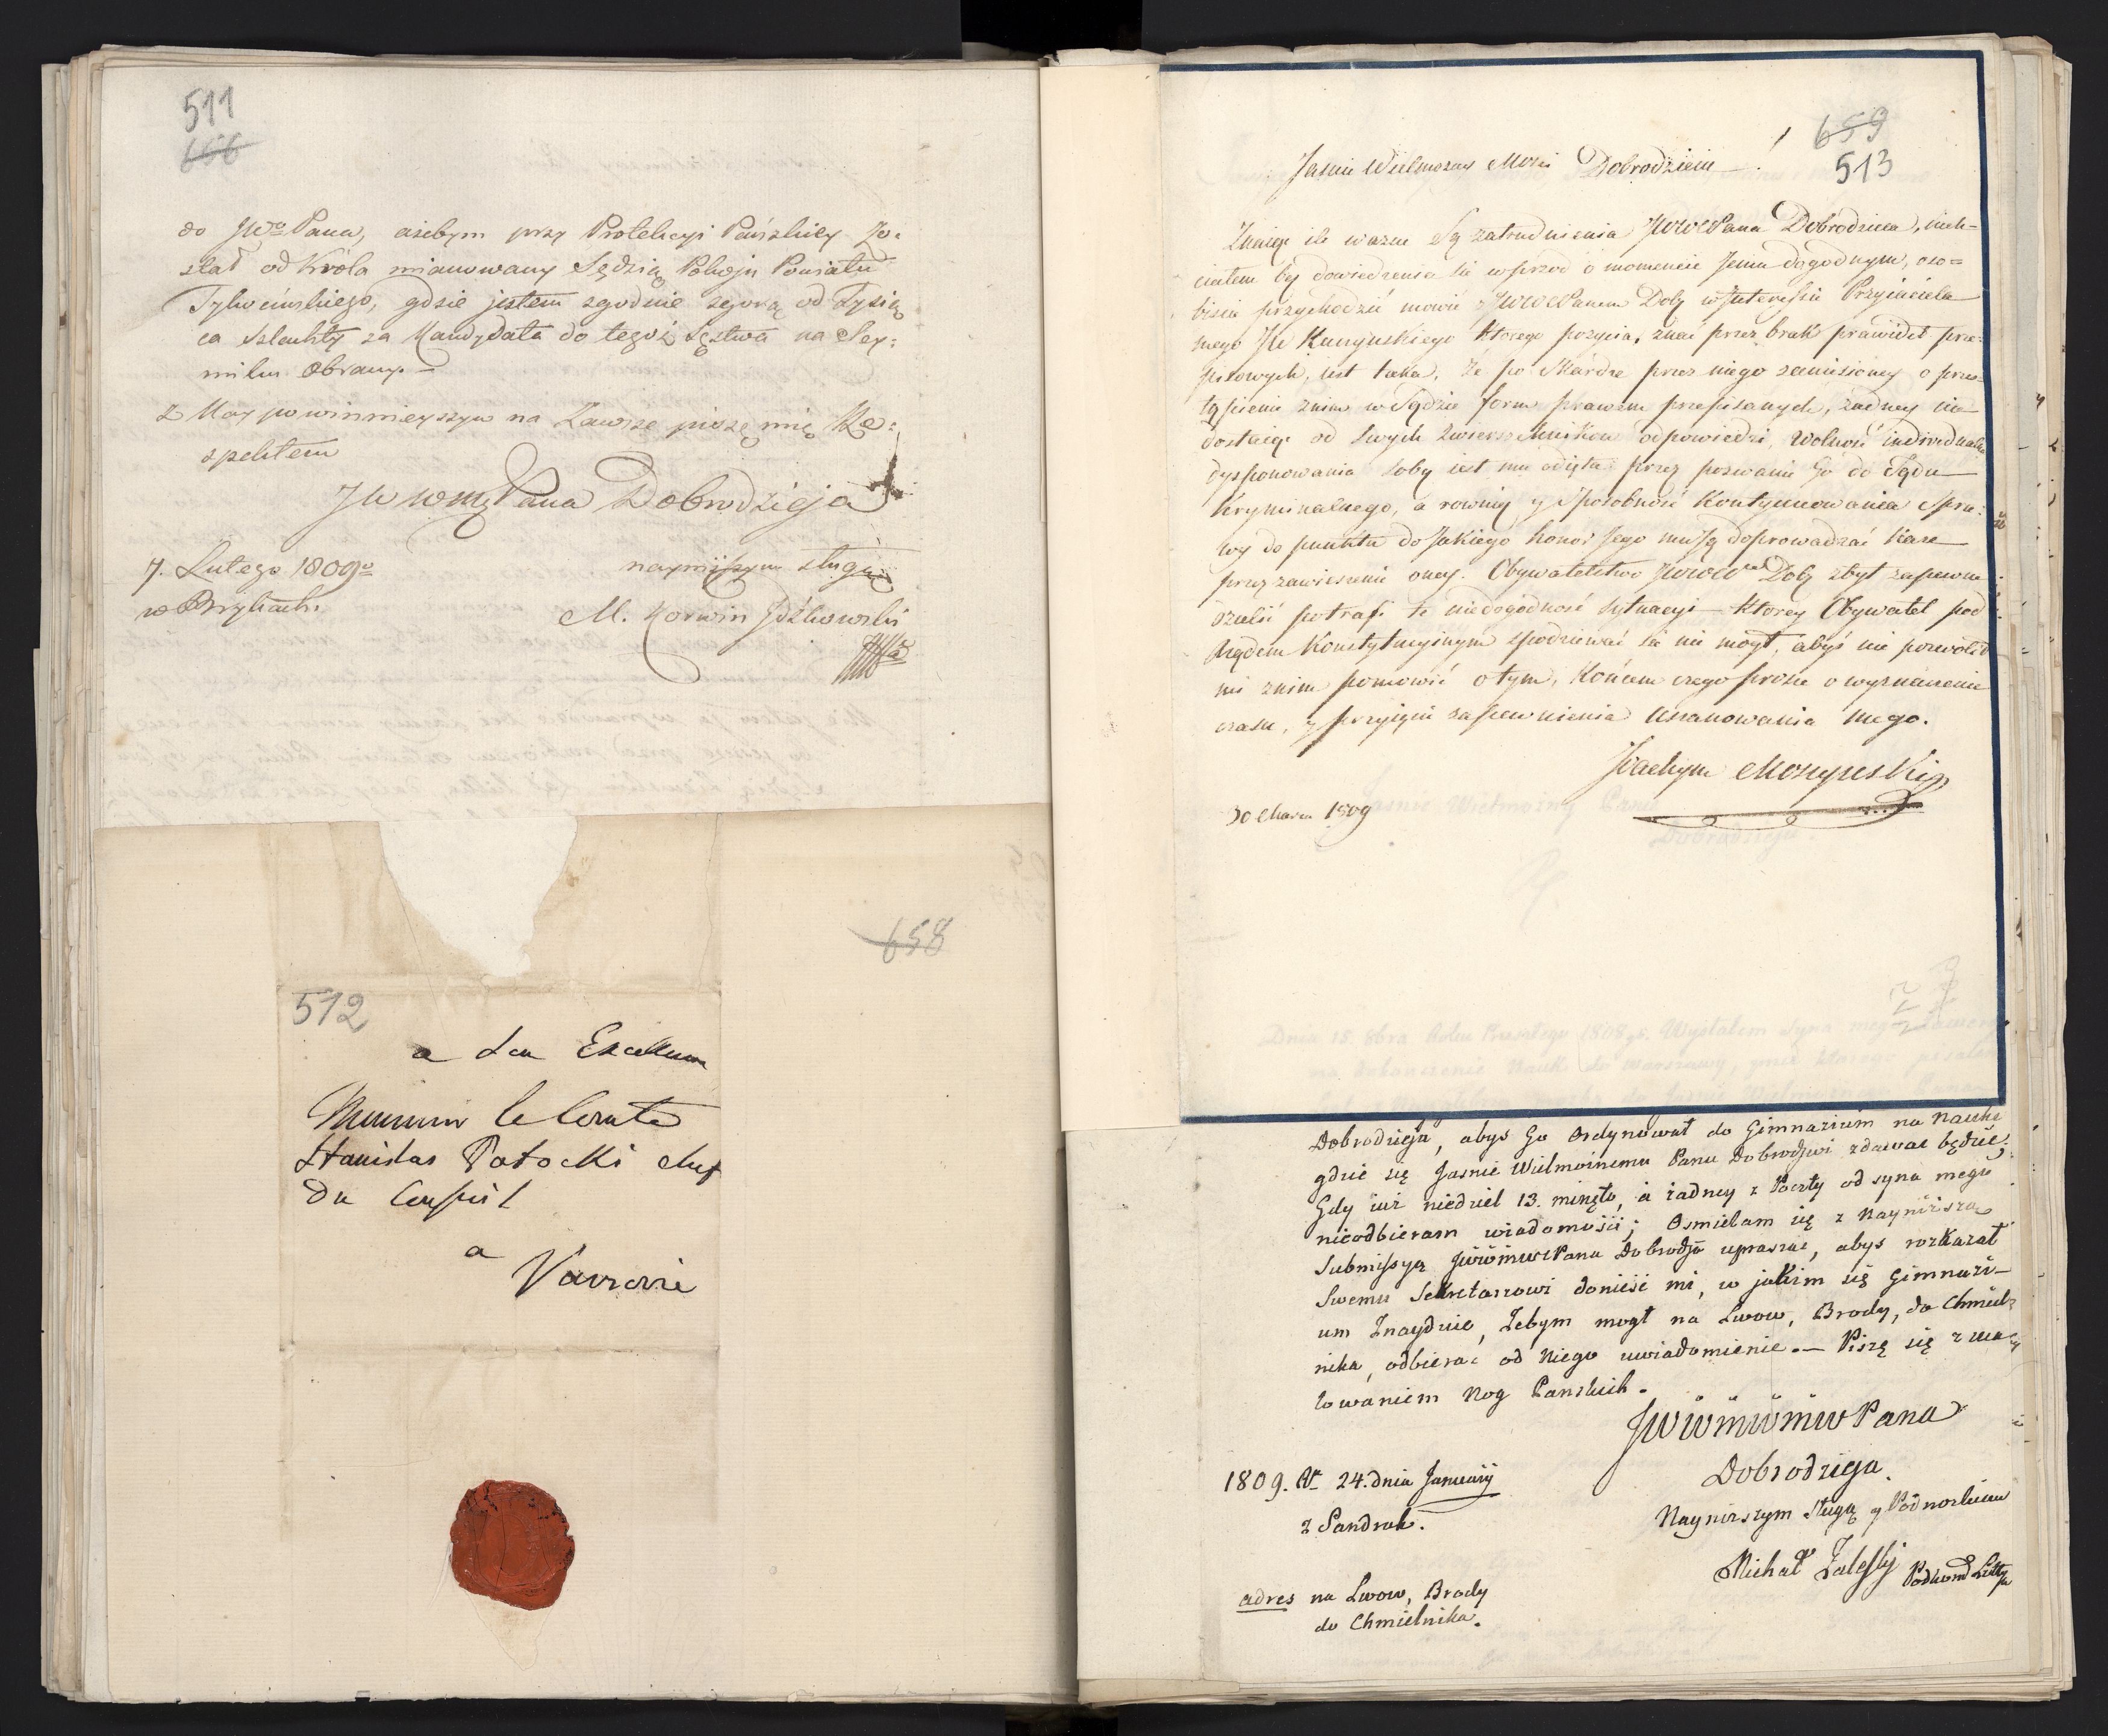 511
656
do JWo Pana, ażebym przy Protekcyi Pańskiey Zo:
stał od Króla mianowany Sędzią Pokoju Powiatu
Tykocińskiego, gdzie jestem zgodnie zgorą od Tysią
ca Szlachty za Kandydata do tegoż Sęstwa na Sey:
miku Obrany.
z Nay powinnieyszym na Zawsze piszę się Re:
spektem
JW WMę Pana Dobrodzieja
7. Lutego 1809o
w Brykach.
nayniższym sługą
M. Korwin
658
512
a Son Excellence
Monsieur le Comte
Stanislas Potocki chef
du Conseil
a
Varsovie
659
513
Jasnie Wielmozny Mosci Dobrodzieiu !
Znaiąc ile wazne Są zatrudnienia JWWPana Dobrodzieia, nieh-
ciałem bez dowiedzenia się wprzod o momencie Jemu dogodnym, oso=
biscie przychodzić mowić z JWWPanem Dobr w Interessie Przyiaciela
mego JW Kuczynskiego ktorego pozycia, znać przez brak prawideł prze:
pisowych, iest taka, że po Skardze przez niego zaniesioney o przes-
tąpienie znim w Sądzie form prawem przepisanych, zadney nie
dostaiąc od Swych Zwierzchnikow odpowiedzi, Wolność individualna
dysponowania sobą iest mu odięta przez pozwanie Go do Sądu
Kryminalnego, a rownie y Sposobność Kontynuowania Spra:
wy do punktu do Jakiego honor Jego muszą doprowadzać kaze
przez zawieszenie oney. Obywatelstwo JWW Dobr zbyt zapewne
dzielić potrafi te niedogodność sytuacyi ktorey Obywatel pod
Rządem Konstytucyinym spodziewać się nie mogł, abyś nie pozwolił
mi znim pomowić otym, Końcem czego proszę o wyznaczenie
czasu, y przyięcie zapewnienia Uszanowania mego.
Joachym Moszynski
30 Marca 1809
Dobrodzieja, abys Go Ordynował do Gimnazium na Nauki
gdzie się Jasnie Wielmoinemu Panu Dobrodjwi zdawać będzie;
Gdy iuż niedziel 13. minęło, a żadney z Poczty od syna mego
nieodbieram wiadomości; Osmielam się z Nayniższą
Submissyą JWWMWPana Dobrodja upraszać, abys rozkazał
Swemu Sekretarzowi donieść mi, w jakim się Gimnazi-
um Znayduie, Żebym mogł na Lwow, Brody, do Chmiel=
nika, odbierać od Niego uwiadomienie. — Piszę się z ca
łowaniem Nog Panskich.
JWWMWMWPana
Dobrodzieja
1809. Ar 24. dnia Januarij
z Sandrak.
Nayniższym sługą y Podnożkiem
Michał Zaleski
adres na Lwow, Brody
do Chmielnika.